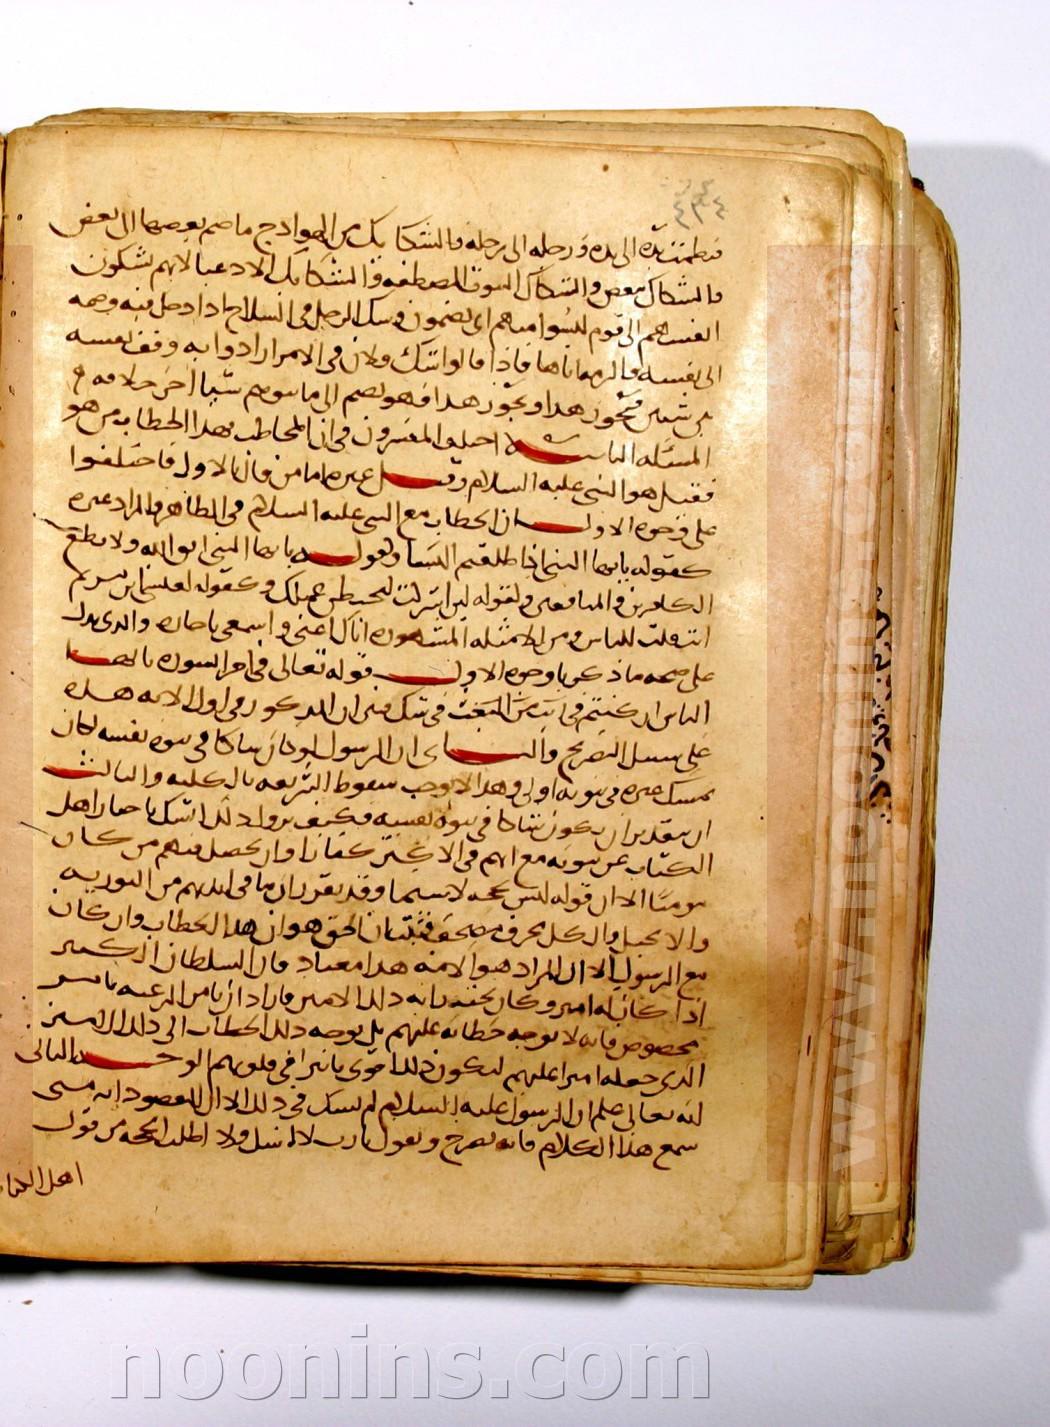 ٤٢٤
فضممت يده الى يده ورجله الى رجله والشكائك من الهوادج ما ضم بعضها الى بعض
والشكاك البيوت المصطفة والشكائك الادعيا لانهم يشكون
انفسهم الى قوم ليسوا منهم اى يضمون وشك الرجل فى السلاح اذا دخل فيه وضمه
الى نفسه والزمه اياها فاذا قالوا شك فلان فى الامر ارادوا انه وقف نفسه
بين شيئين فيجوز هذا ويجوز هذا فهو يضم الى ما يتوهم شيا اخر خلافه
المسئلة الثانية اختلف المفسرون فى ان المخاطب بهذا الخطاب من هو
فقيل هو النبى عليه السلام وقيل غيره اما من قال بالاول فاختلفوا
على وجوه الاول ان الخطاب مع النبى عليه السلام فى الظاهر والمراد غيره
كقوله يايها النبى اذا طلقتم النسا وكقوله يايها النبى اتق الله ولا تطع
الكافرين والمنافقين وكقوله لين اشركت ليحبطن عملك وكقوله لعيسى ابن مريم
اانت قلت للناس ومن الامثلة المشهورة اياك اعنى واسمعى يا جاره والذى يدل
على صحة ما ذكرنا وجوه الاول قوله تعالى فى اخر السورة يايها
الناس ان كنتم فى شك فبين ان المذكور فى اول الاية هذه
على سبيل التصريح والثانى ان الرسول لو كان شاكا فى نبوة نفسه لكان
شك غيره فى نبوته اولى وهذا يوجب سقوط الشريعة بالكلية والثالث
ان بتقدير ان يكون شاكا فى نبوة نفسه فكيف يزول ذلك الشك باخبار اهل
الكتاب عن نبوته مع انهم فى الاكثر كفار وان حصل فيهم من كان
مومنا الا ان قوله ليس بحجة لا سيما وقد تقرر ان ما فى ايديهم من التورية
والانجيل فالكل محرف مصحف فثبت ان الحق هو ان هذا الخطاب وان كان
مع الرسول الا ان المراد هو الامة هذا معتاد فان السلطان الكبير
اذا كان له امير وكان تحت راية ذلك الامير فاراد ان يامر الرعية بامر
مخصوص فانه لا يوجه خطابه عليهم بل يوجه ذلك الخطاب الى ذلك الامير
الذى جعله اميرا عليهم ليكون ذلك اقوى تاثيرا فى قلوبهم الوجه الثانى
انه تعالى علم ان الرسول عليه السلام لم يشك فى ذلك الا ان المقصود انه متى
سمع هذا الكلام فانه يصرح ويقول يا رب لا اشك ولا اطلب الحجة من قول
اهل الكتاب
noonins.com